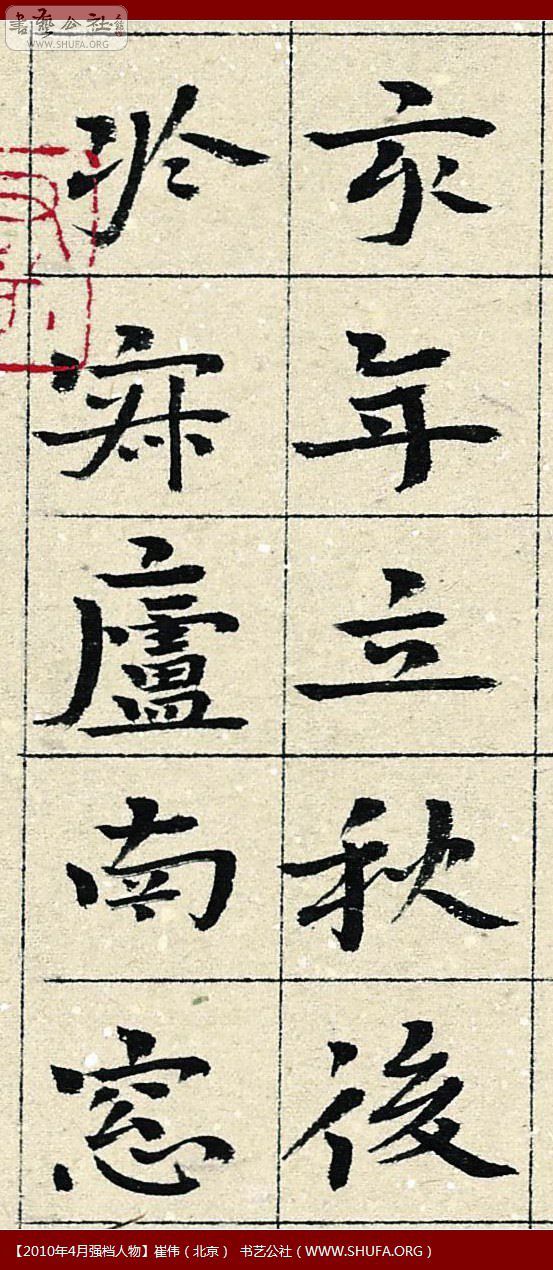 書藝公社
WWW.SHUFA.ORG
亥年立秋後
於廬南窓
【2010年4月强档人物】崔伟（北京） 书艺公社（WWW.SHUFA.ORG）